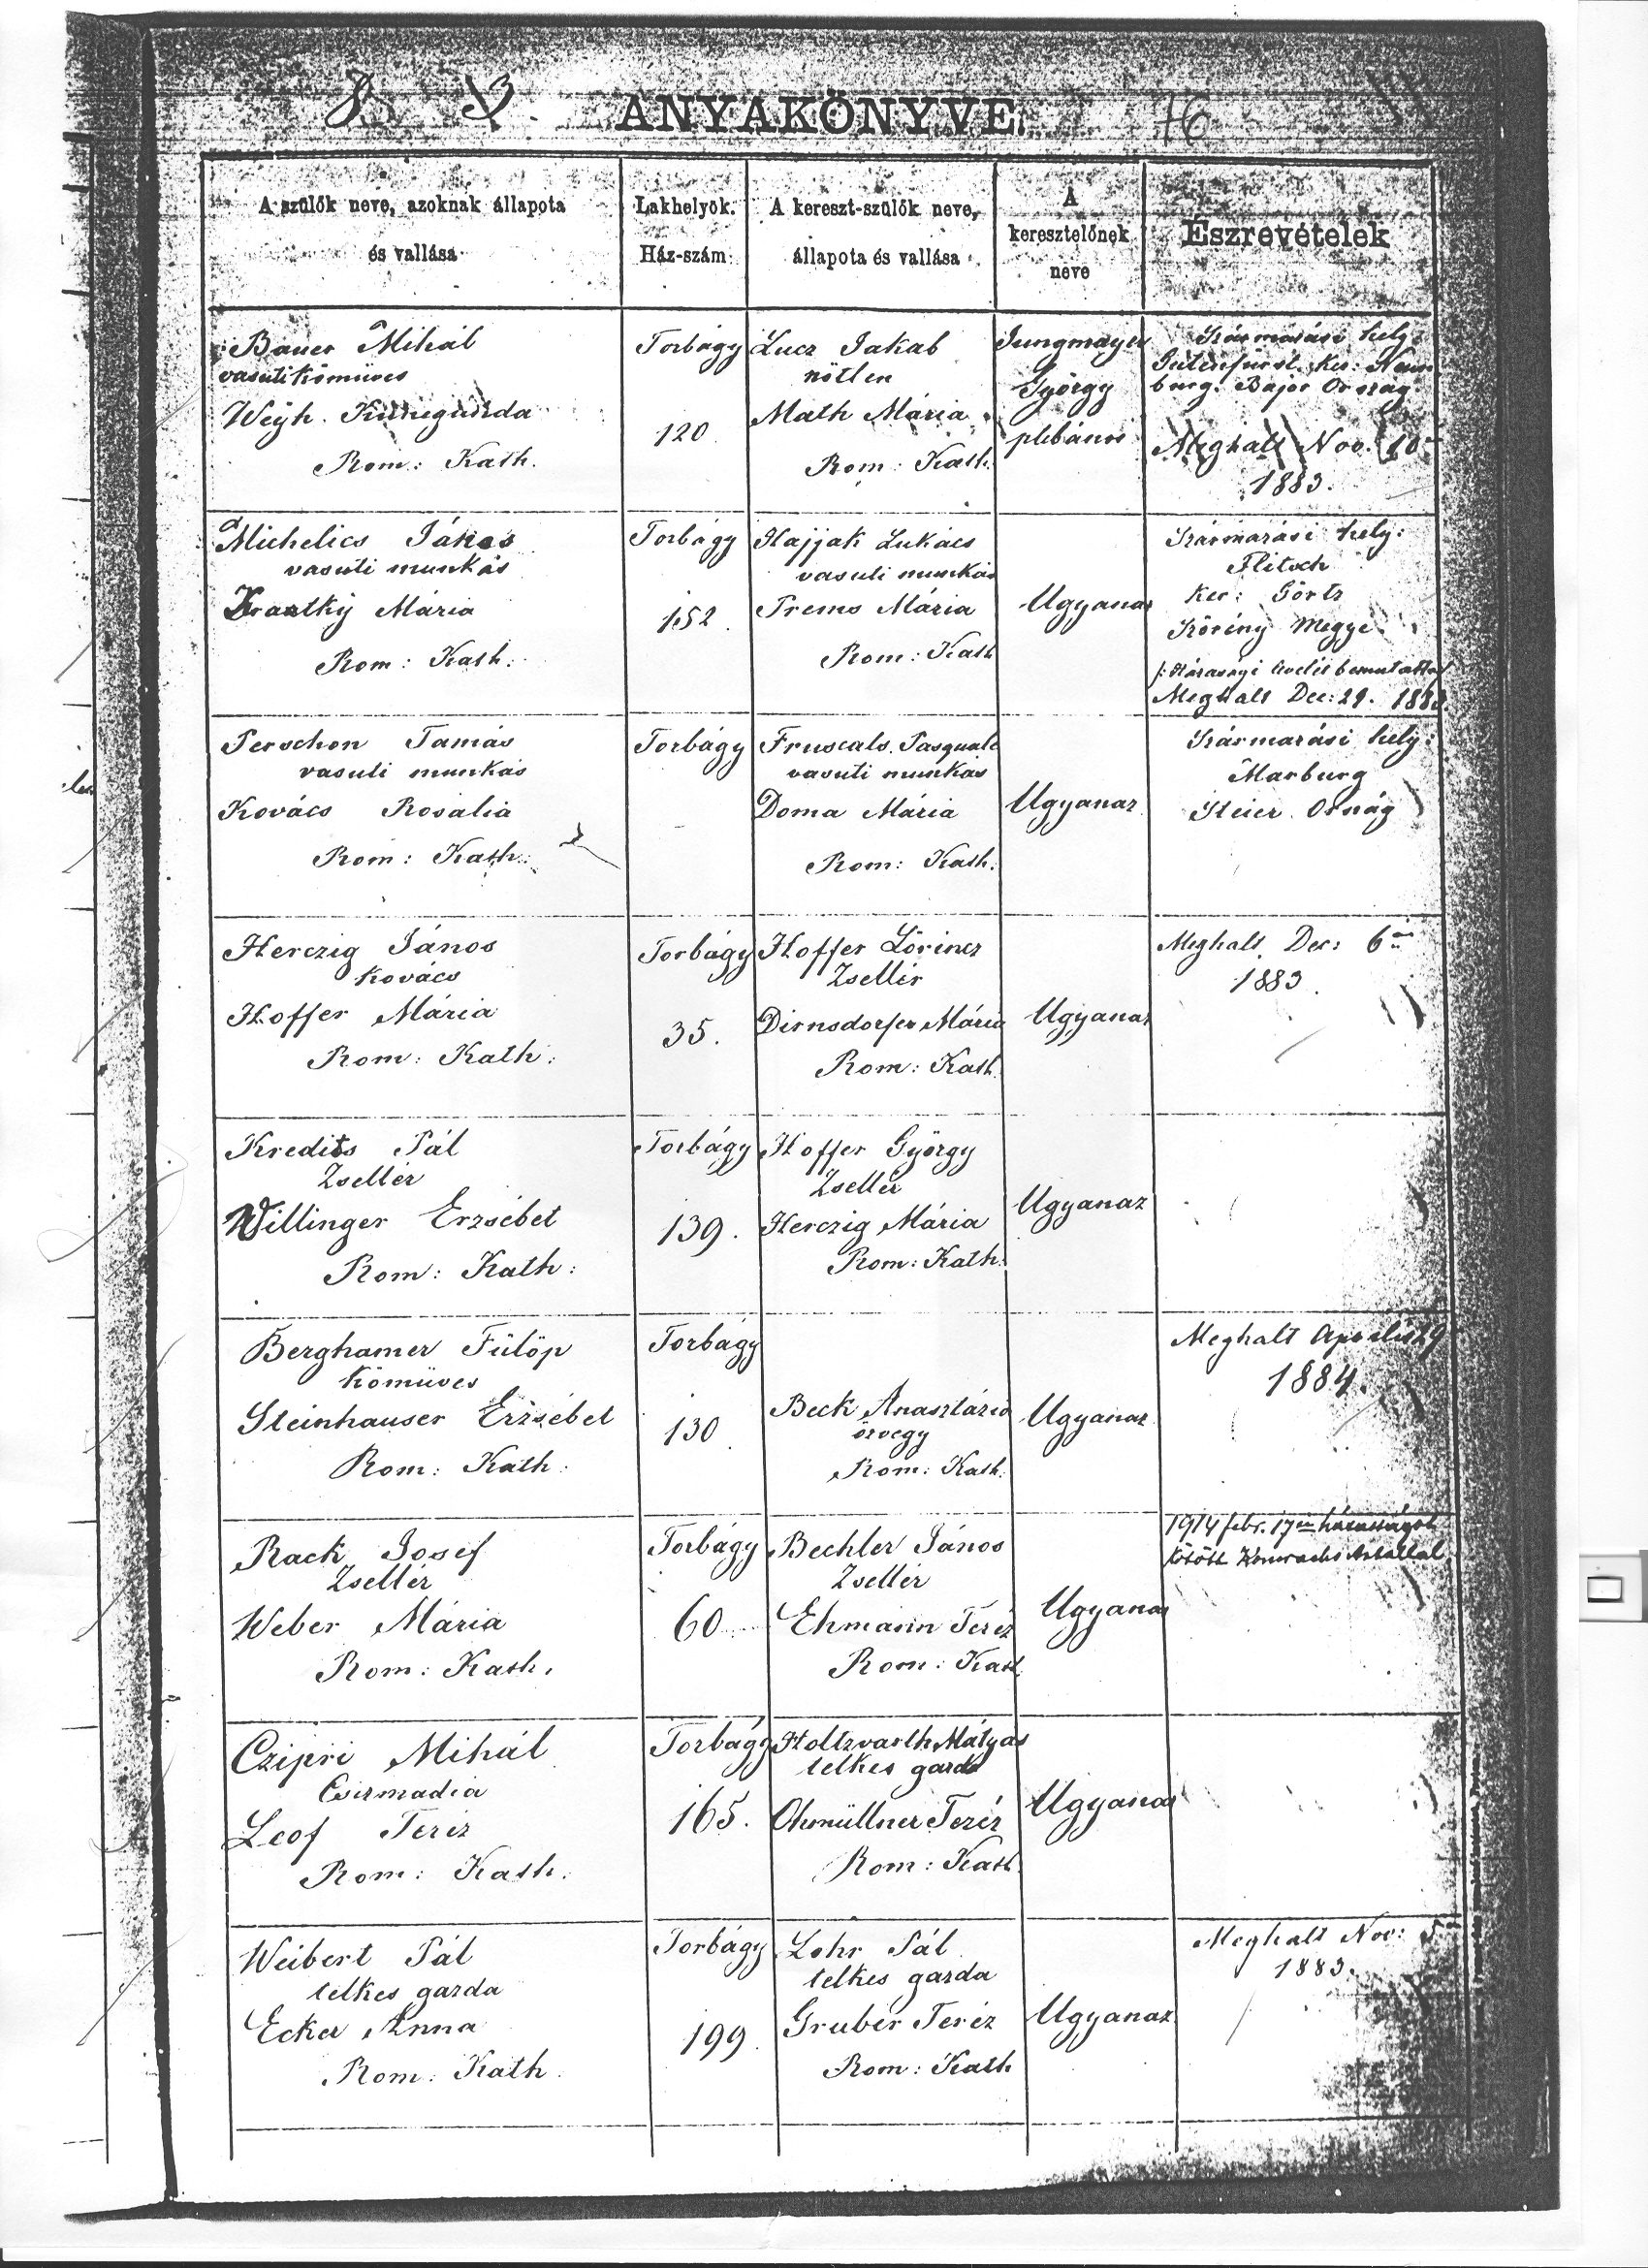 ANYAKÖNYVE
76
A szülők neve, azoknak állapota
és vallása
Lakhelyök.
Ház-szám
A kereszt-szülők neve,
állapota és vallása
A
keresztelőnek
neve
Észrevételek
Bauer Mihál
vasuti kömüves
Weyh. Kunegunda
Rom: Kath.
Torbágy
120
Lucz Jakab
nötlen
Math Mária
Rom: Kath.
Jungmayer
György
plébános
Származási hely:
ker:
burg. Bajor Ország
Meghalt Nov. 10
1883.
Michelics János
vasuti munkás
Mária
Rom: Kath:
Torbágy
152.
Hajjak Lukács
vasuti munkás
Prems Mária
Rom: Kath
Ugyanaz
Származási hely:
Flitsch
ker: Görtz
Megye
bemutatta
Meghalt Dec: 29. 1883
Perschon Tamás
vasuti munkás
Kovács Rosalia
Rom: Kath:
Torbágy
Fruscals. Pasquale
vasuti munkás
Doma Mária
Rom: Kath:
Ugyanaz
Származási hely:
Marburg
Steier Ország
Herczig János
Kovács
Hoffer Mária
Rom: Kath:
Torbágy
35.
Hoffer Lörincz
Zsellér
Dirnsdorfer Mária
Rom: Kath.
Ugyanaz
Meghalt Dec: 6án
1883.
Kredits Pál
Zsellér
Willinger Erzsébet
Rom: Kath:
Torbágy
139.
Hoffer György
Zsellér
Herczig Mária
Rom: Kath:
Ugyanaz
Berghamer Fülöp
Kömüves
Steinhauser Erzsébet
Rom: Kath:
Torbágy
130
Beck Anasztázia
özvegy
Rom: Kath.
Ugyanaz
Meghalt Április 29
1884.
Rack Josef
Zsellér
Weber Mária
Rom: Kath.
Torbágy
60
Bechler János
Zsellér
Ehmann Teréz
Rom: Kath.
Ugyanaz
1914 febr. 17én házasságot
kötött
Czipri Mihál
Csizmadia
Leof Teréz
Rom: Kath.
Torbágy
165.
Holtzvarth Mátyás
telkes gazda
Ohmüllner Teréz
Rom: Kath.
Ugyanaz
Weibert Pál
telkes gazda
Ecker Anna
Rom: Kath.
Torbágy
199.
Lohr Pál
telkes gazda
Gruber Teréz
Rom: Kath
Ugyanaz
Meghalt Nov: 5
1883.